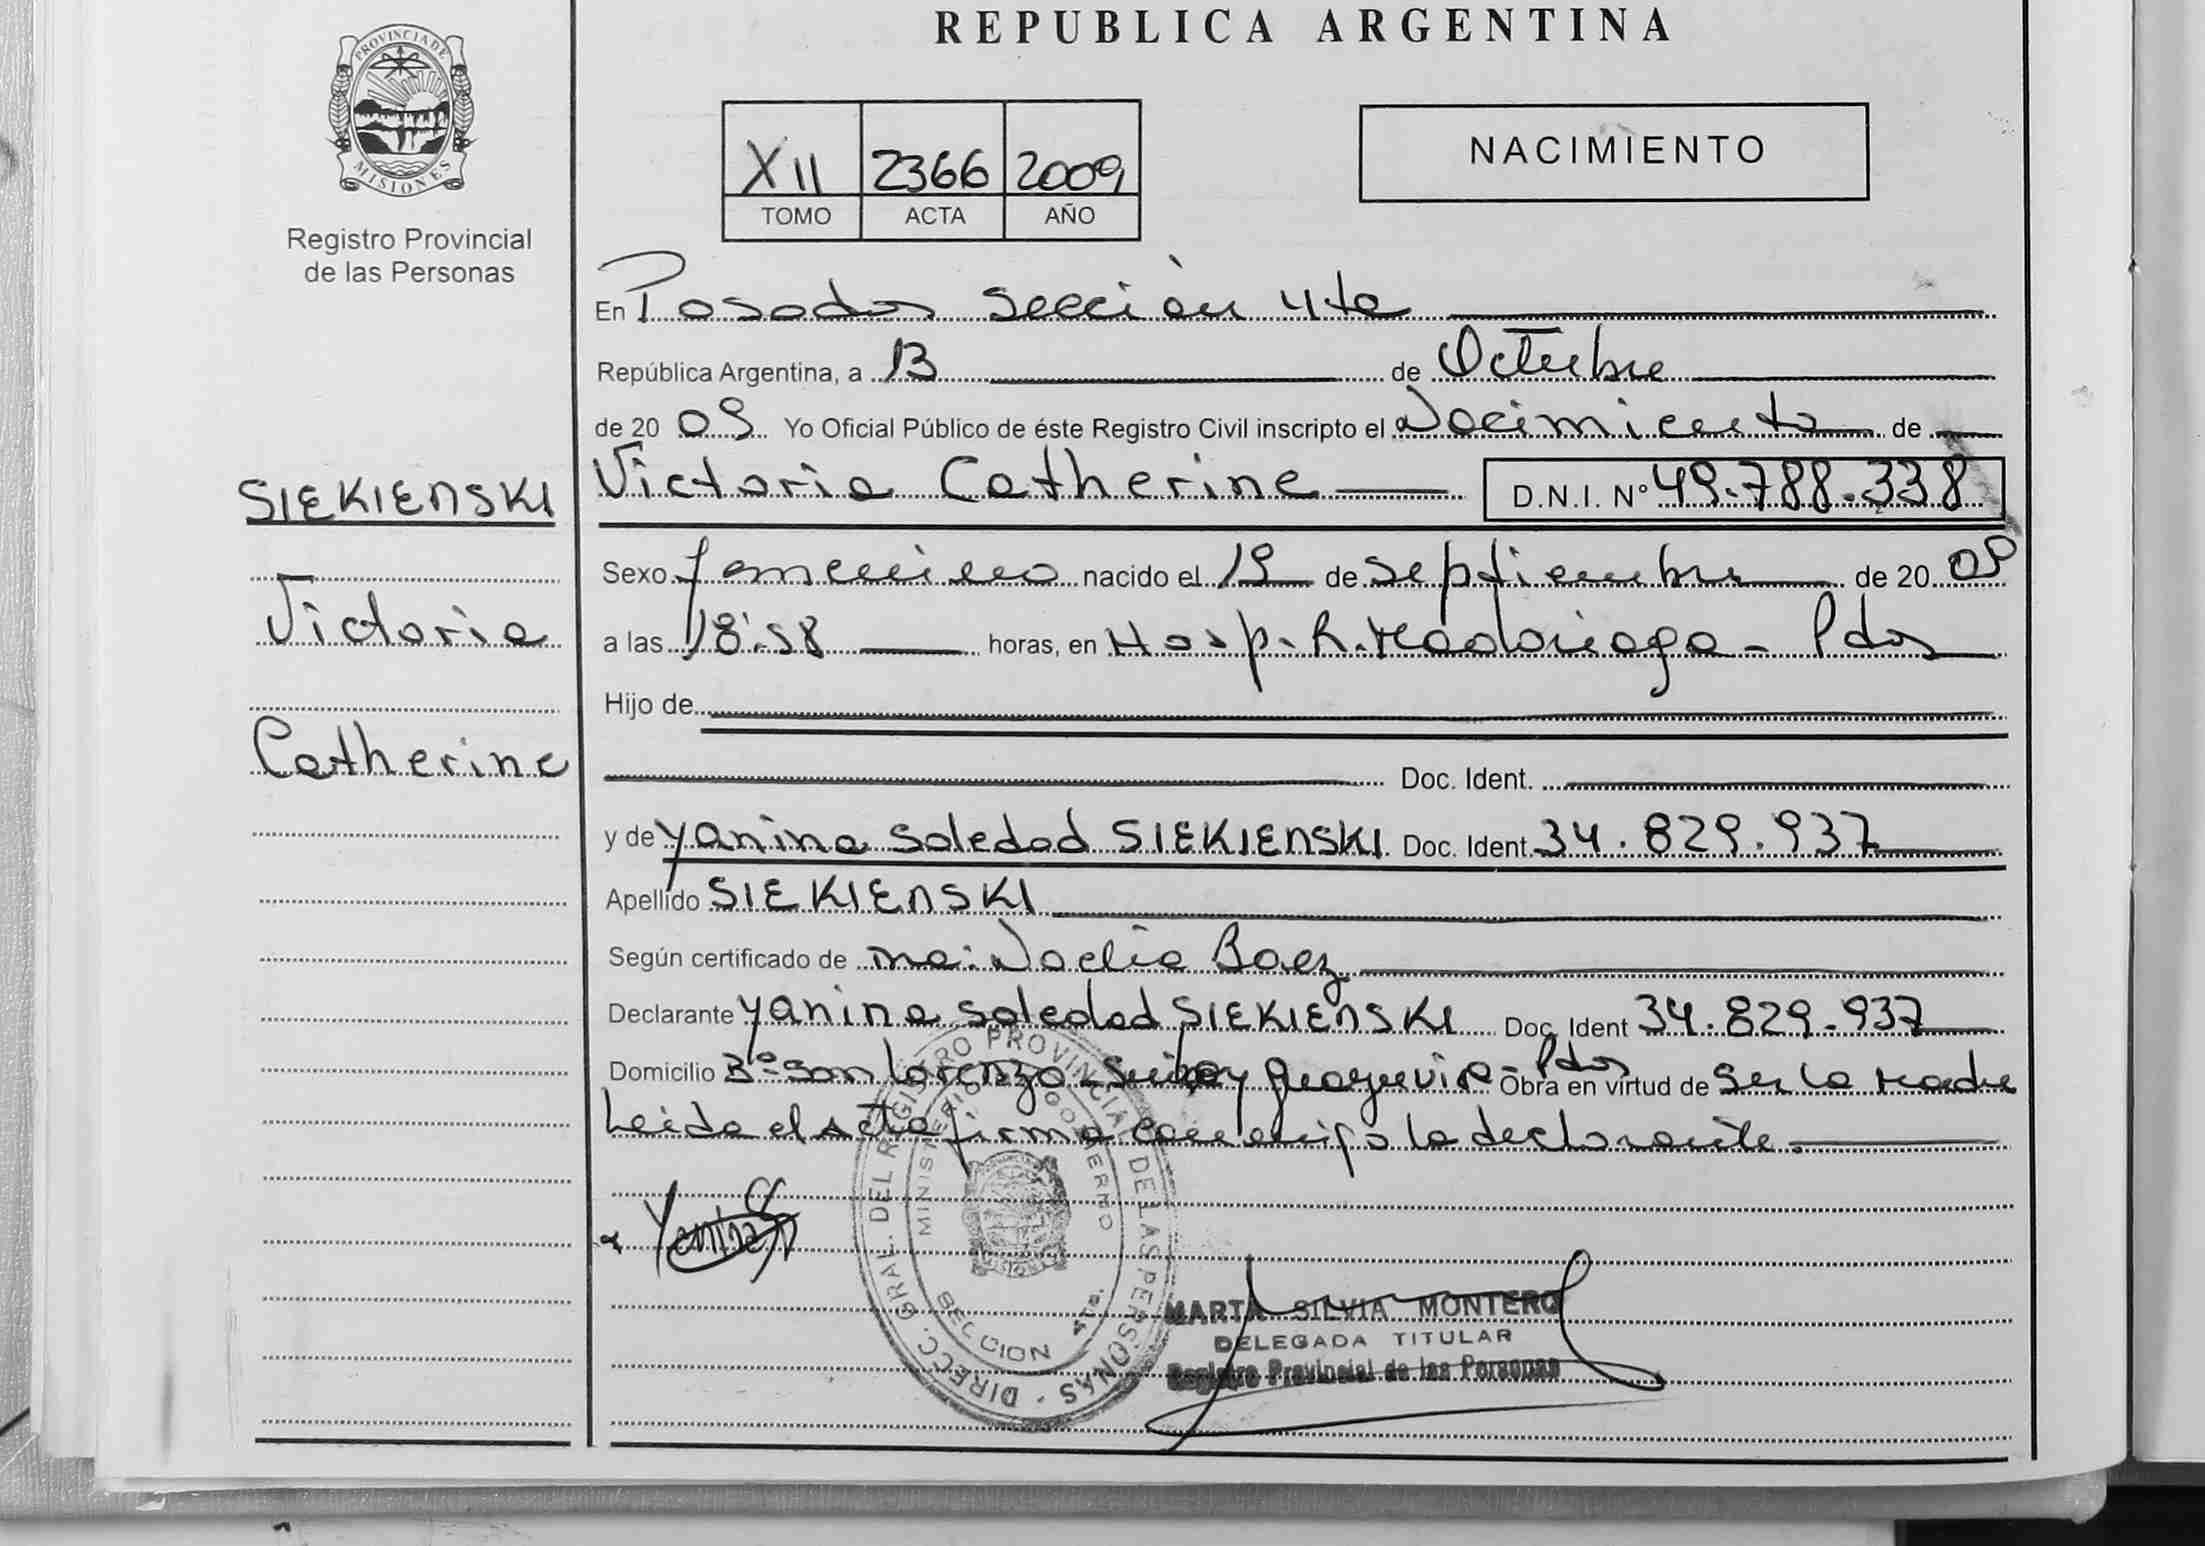 REPUBLICA ARGENTINA
PROVINCIA DE
MISIONES
Registro Provincial
de las Personas
XII 2366 2009
TOMO ACTA AÑO
NACIMIENTO
En Posadas Sección 4ta
República Argentina, a 13 de Octubre
de 20 09 Yo Oficial Público de éste Registro Civil inscripto el Nacimiento de
Victoria Catherine D.N.I. Nº 49.788.338
SIEKIENSKI
Victoria
Catherine
Sexo femenino nacido el 19 de septiembre de 20 09
a las 18:58 horas, en Hosp. R. Madariaga - Pdas
Hijo de
Doc. Ident.
y de Yanina Soledad SIEKIENSKI Doc. Ident. 34.829.937
Apellido SIEKIENSKI
Según certificado de Noelia Baez
Declarante Yanina Soledad SIEKIENSKI Doc. Ident 34.829.937
Domicilio Bº San Lorenzo - Pdas Obra en virtud de ser la madre
Leida el Acta firma conmigo la declarante.
DIRECC. GRAL. DEL REGISTRO PROVINCIAL DE LAS PERSONAS
MINISTERIO GOBIERNO
SECCION 4ta.
MARTA SILVIA MONTERO
DELEGADA TITULAR
Registro Provincial de las Personas